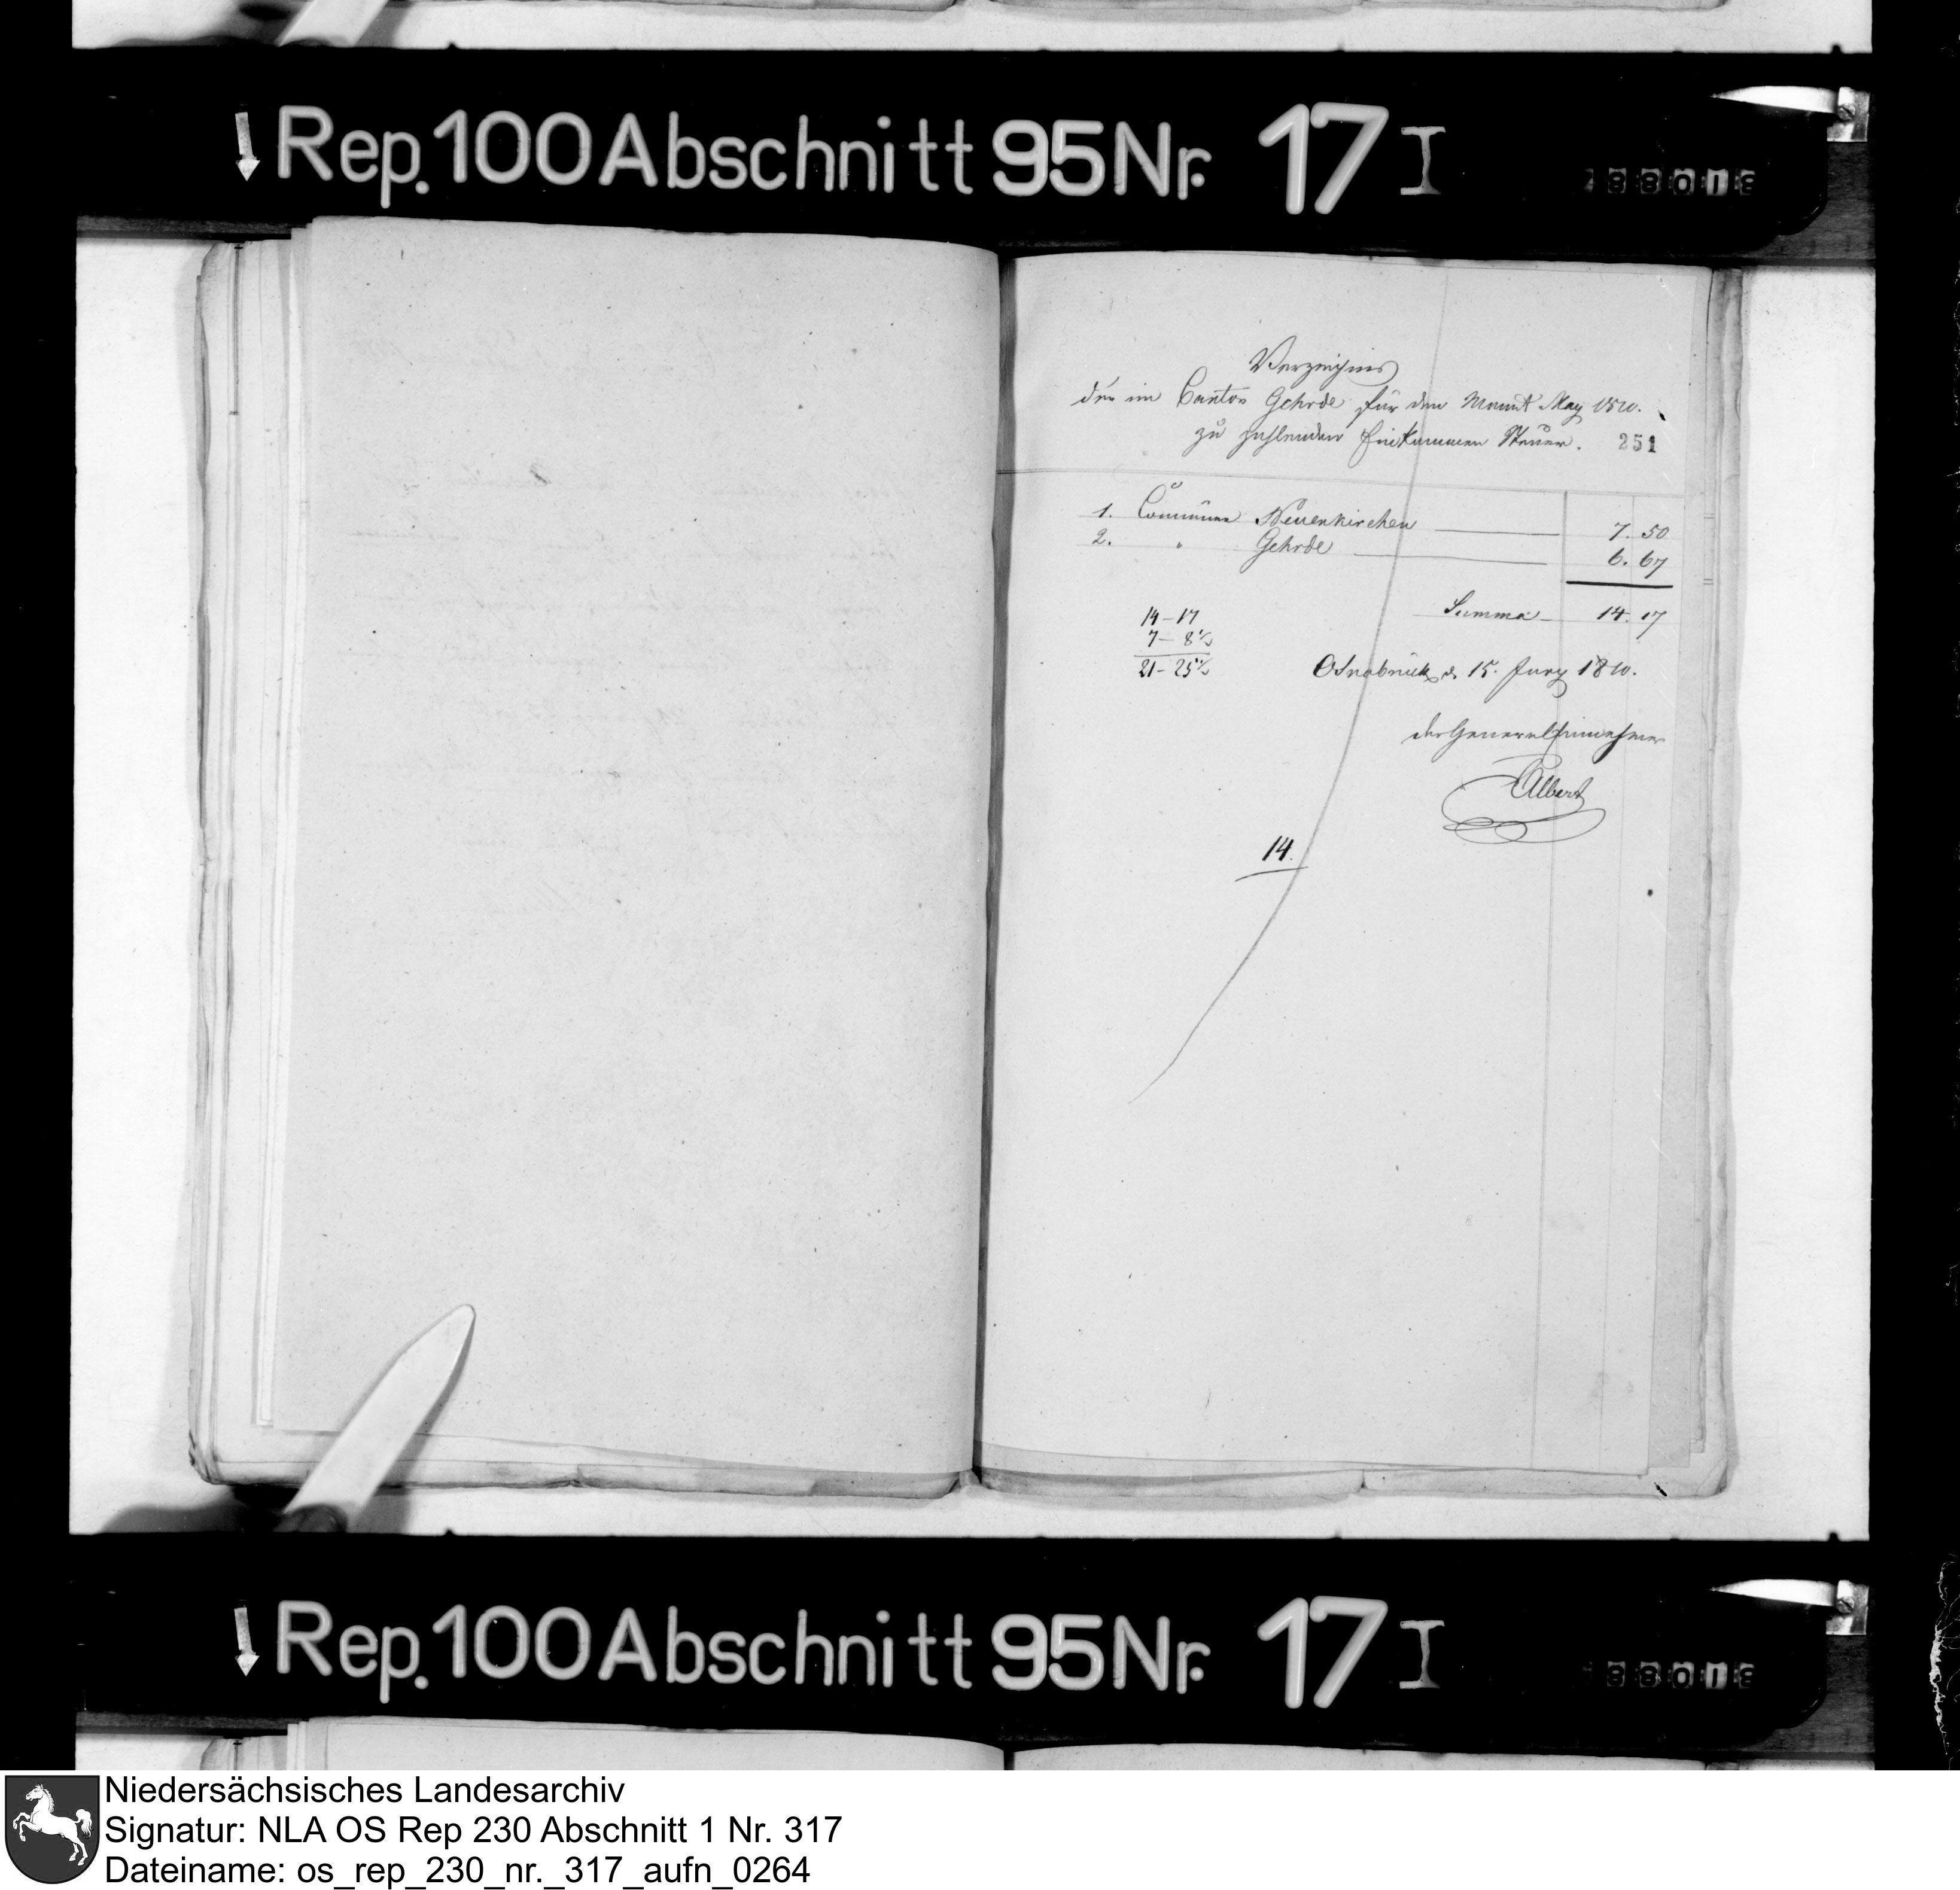 Rep. 100 Abschnitt 95 Nr. 17 I
Verzeichnis
der im Canton Gehrde für den Monat May 1810.
zu zahlenden Einkommen Steuer. 251
1. Commune Neuenkirchen 7. 50
2. " Gehrde 6. 67
Summa 14. 17
14-17
7- 8 1/2
21- 25 1/2
Osnabrück d. 15. Juny 1810.
der General Einnehmer
Albert
14.
Rep. 100 Abschnitt 95 Nr. 17 I
Niedersächsisches Landesarchiv
Signatur: NLA OS Rep 230 Abschnitt 1 Nr. 317
Dateiname: os_rep_230_nr._317_aufn_0264